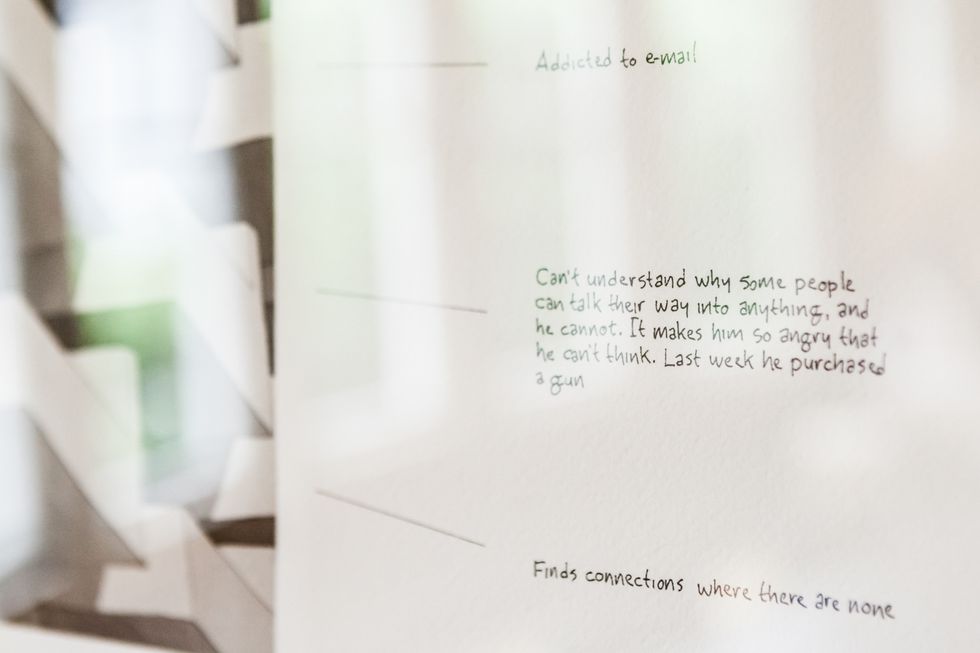 Addicted to e-mail
Can't understand why some people
can talk their way into anything, and
he cannot. It makes him so angry that
he can't think. Last week he purchased
a gun
Finds connections where there are none